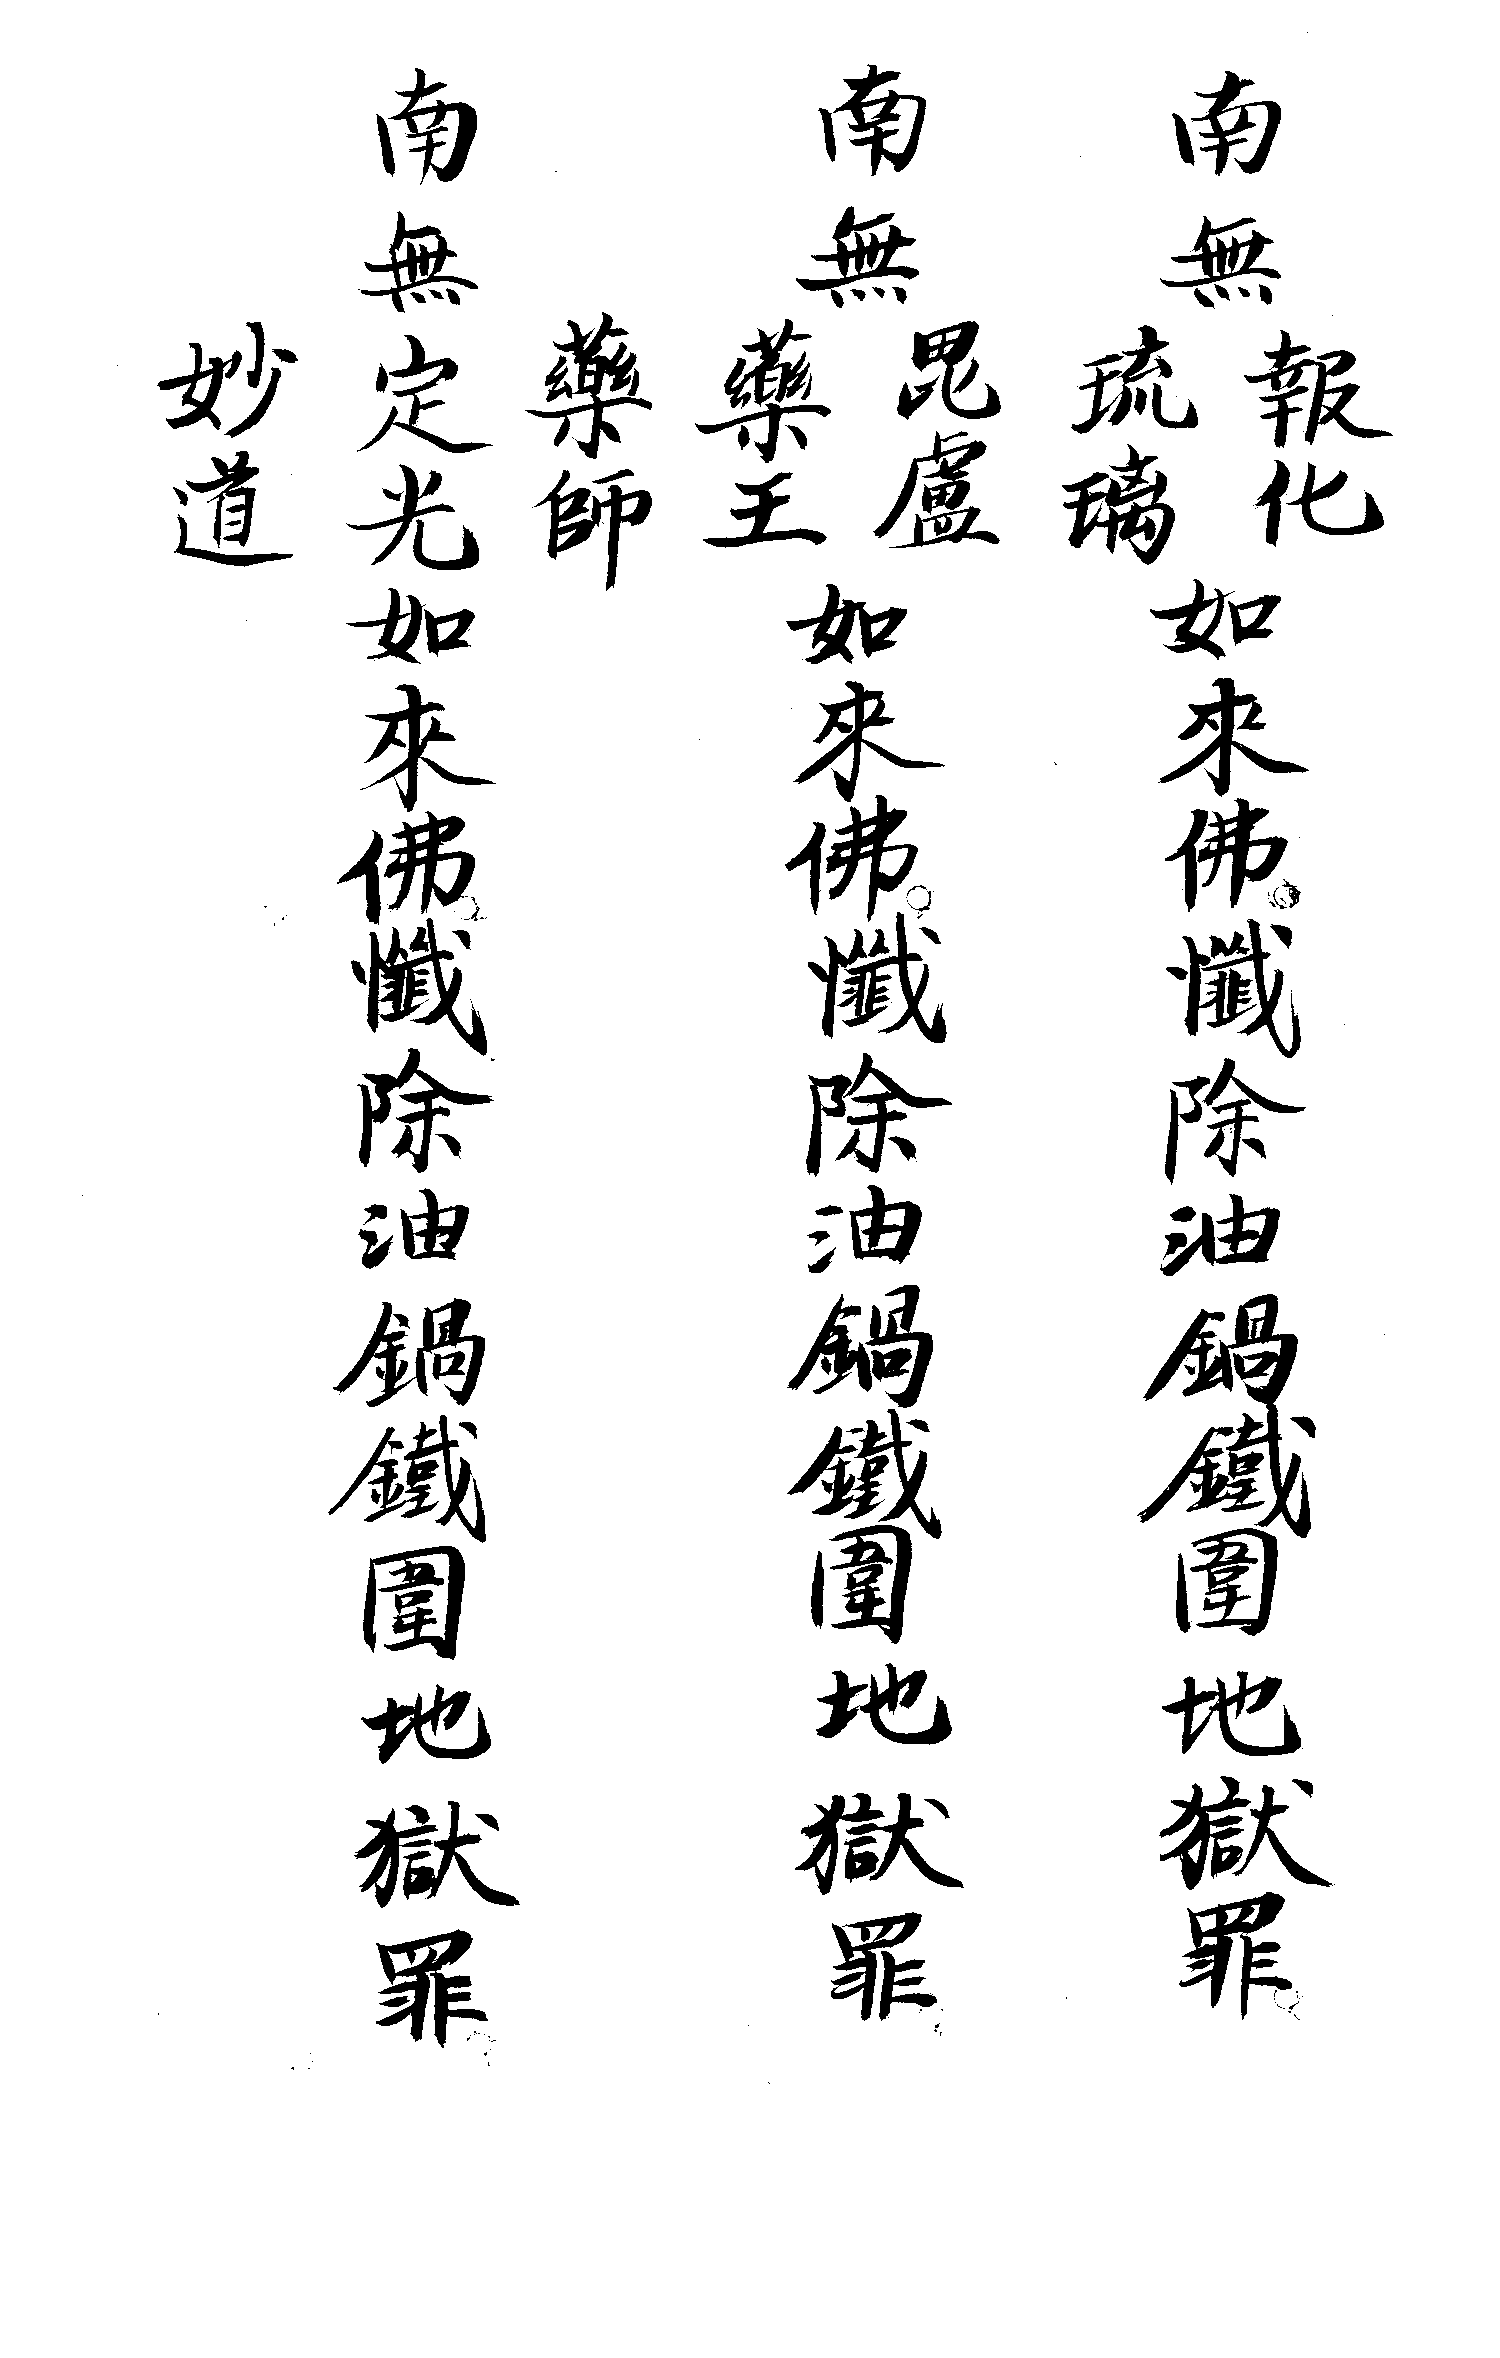 南無報化如來佛懺除油鍋鐵圍地獄罪
琉璃
南無毘盧如來佛懺除油鍋鐵圍地獄罪
藥王
藥師
南無定光如來佛懺除油鍋鐵圍地獄罪
妙道